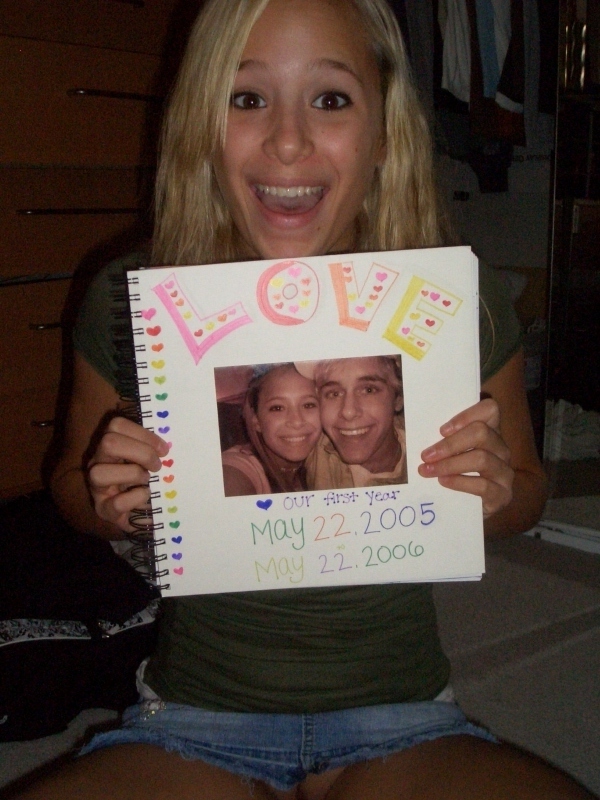 LOVE
our first year
May 22. 2005
May 22. 2006